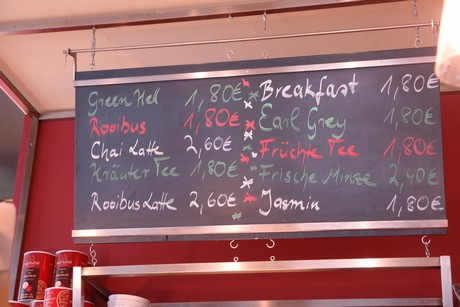 Green Hell 1,80€
Rooibus 1,80€
Chai Latte 2,60€
Kräuter Tee 1,80€
Rooibus Latte 2,60€
Breakfast 1,80€
Earl Grey 1,80€
Früchte Tee 1,80€
Frische Minze 2,40€
Jasmin 1,80€